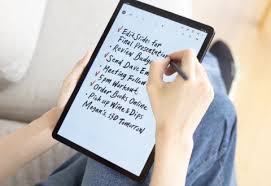 ✓ Edit Slides for
Final Presentation
• Review Budget
✓ Send Dave Em
• Meeting Follow
✓ 5pm Workout
✓ Order Books Online
• Pick up Wine & Dips
Megan's $30 Tomorrow